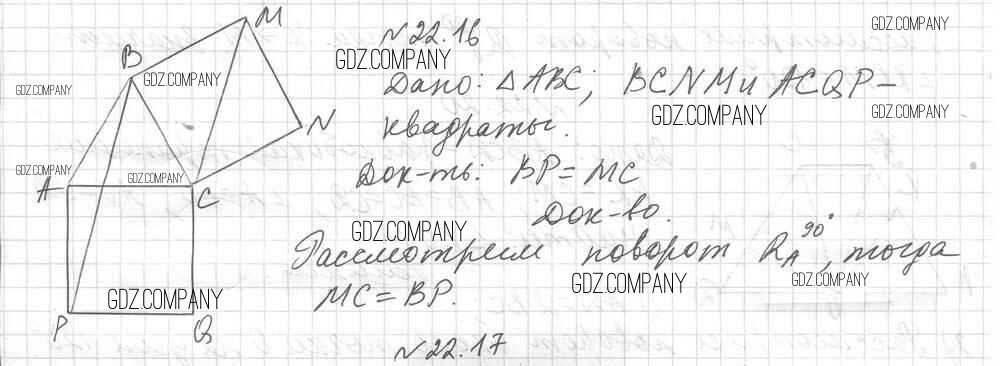 N 22.16
Дано: △ABC; BCNM и ACQP –
квадраты.
Док-ть: BP = MC
Док-во.
Рассмотрим поворот R_A^90°, тогда
MC = BP.
N 22.17
M
B
N
A
C
P
Q
GDZ.COMPANY
GDZ.COMPANY
GDZ.COMPANY
GDZ.COMPANY
GDZ.COMPANY
GDZ.COMPANY
GDZ.COMPANY
GDZ.COMPANY
GDZ.COMPANY
GDZ.COMPANY
GDZ.COMPANY
GDZ.COMPANY